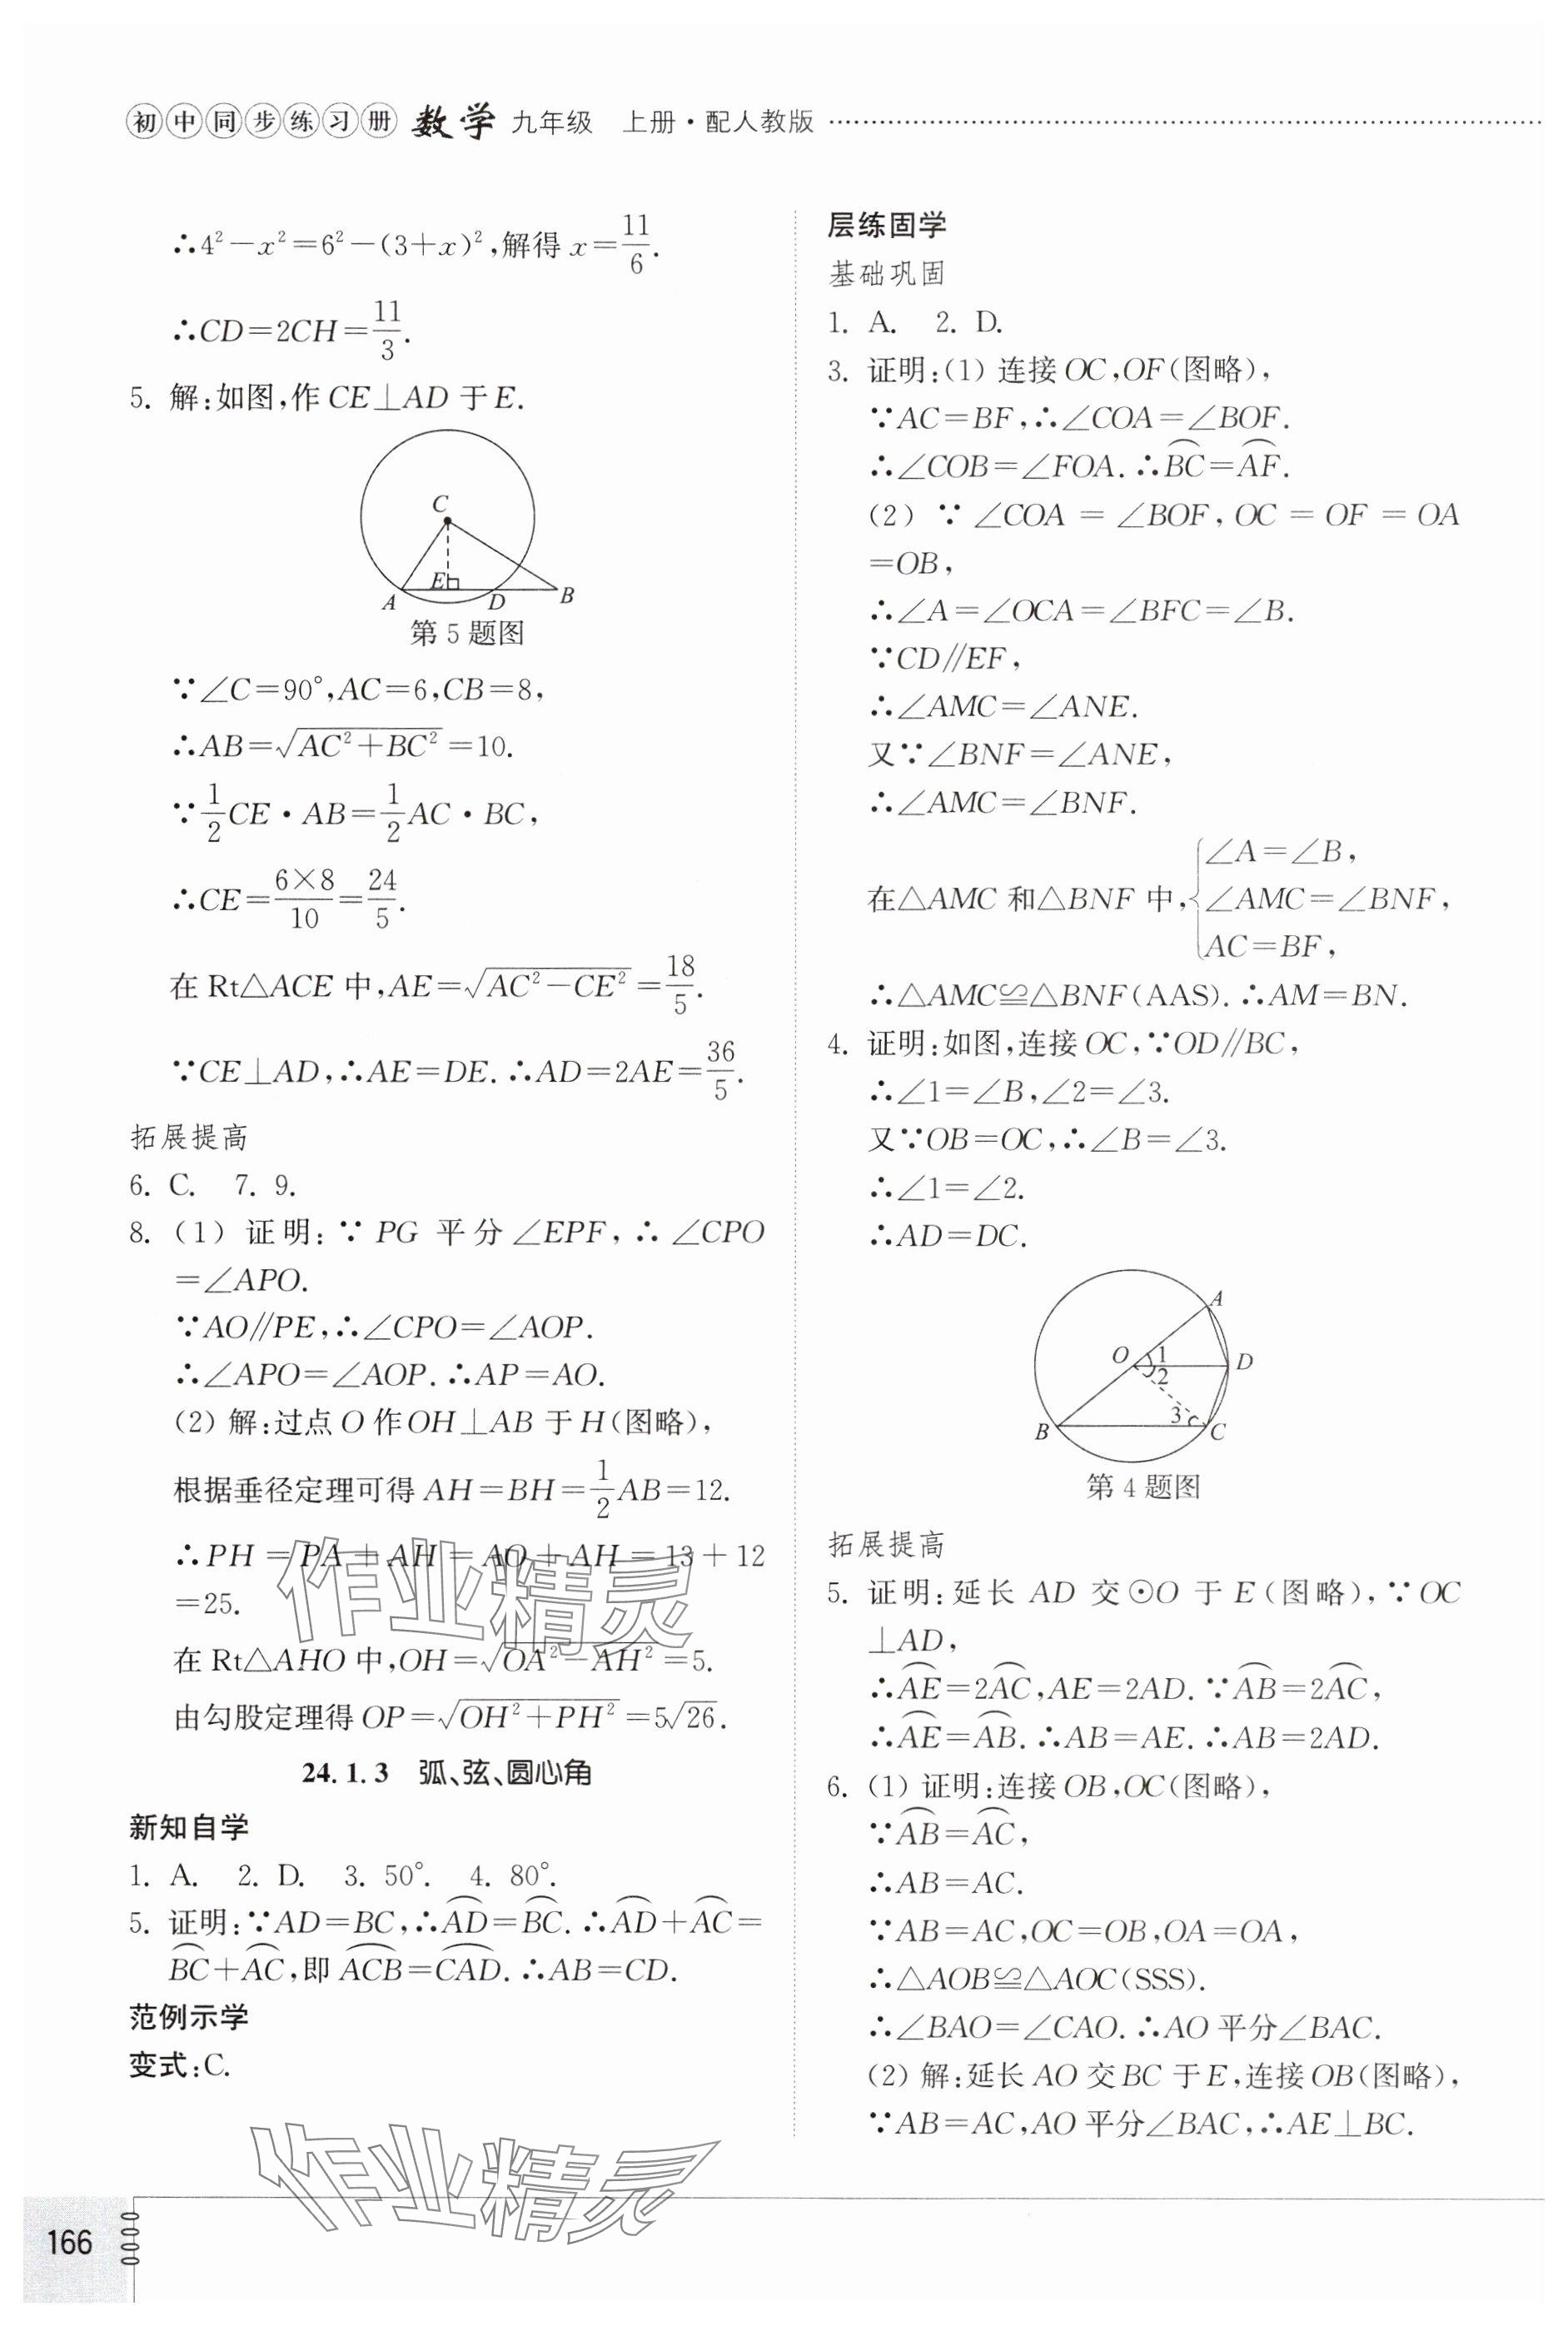 初中同步练习册 数学 九年级 上册·配人教版
∴4²－x²＝6²－(3＋x)²,解得 x＝11/6.
∴CD＝2CH＝11/3.
5. 解:如图,作 CE⊥AD 于 E.
C
E
A
D
B
第 5 题图
∵∠C＝90°,AC＝6,CB＝8,
∴AB＝√(AC²＋BC²)＝10.
∵1/2CE·AB＝1/2AC·BC,
∴CE＝(6×8)/10＝24/5.
在 Rt△ACE 中,AE＝√(AC²－CE²)＝18/5.
∵CE⊥AD,∴AE＝DE. ∴AD＝2AE＝36/5.
拓展提高
6. C. 7. 9.
8. (1) 证明:∵ PG 平分∠EPF, ∴ ∠CPO
＝∠APO.
∵AO∥PE,∴∠CPO＝∠AOP.
∴∠APO＝∠AOP. ∴AP＝AO.
(2) 解:过点 O 作 OH⊥AB 于 H(图略),
根据垂径定理可得 AH＝BH＝1/2AB＝12.
∴PH＝PA＋AH＝AO＋AH＝13＋12
＝25.
在 Rt△AHO 中,OH＝√(OA²－AH²)＝5.
由勾股定理得 OP＝√(OH²＋PH²)＝5√26.
24.1.3 弧、弦、圆心角
新知自学
1. A. 2. D. 3. 50°. 4. 80°.
5. 证明:∵AD＝BC,∴A͡D＝B͡C. ∴A͡D＋A͡C＝
B͡C＋A͡C,即 A͡C͡B＝C͡A͡D. ∴AB＝CD.
范例示学
变式:C.
层练固学
基础巩固
1. A. 2. D.
3. 证明:(1) 连接 OC,OF(图略),
∵AC＝BF,∴∠COA＝∠BOF.
∴∠COB＝∠FOA. ∴B͡C＝A͡F.
(2) ∵ ∠COA ＝ ∠BOF, OC ＝ OF ＝ OA
＝OB,
∴∠A＝∠OCA＝∠BFC＝∠B.
∵CD∥EF,
∴∠AMC＝∠ANE.
又∵∠BNF＝∠ANE,
∴∠AMC＝∠BNF.
∠A＝∠B,
在△AMC 和△BNF 中,{∠AMC＝∠BNF,
AC＝BF,
∴△AMC≌△BNF(AAS). ∴AM＝BN.
4. 证明:如图,连接 OC,∵OD∥BC,
∴∠1＝∠B,∠2＝∠3.
又∵OB＝OC,∴∠B＝∠3.
∴∠1＝∠2.
∴AD＝DC.
A
O
1
2
D
3
B
C
第 4 题图
拓展提高
5. 证明:延长 AD 交⊙O 于 E(图略),∵OC
⊥AD,
∴A͡E＝2A͡C,AE＝2AD. ∵A͡B＝2A͡C,
∴A͡E＝A͡B. ∴AB＝AE. ∴AB＝2AD.
6. (1) 证明:连接 OB,OC(图略),
∵A͡B＝A͡C,
∴AB＝AC.
∵AB＝AC,OC＝OB,OA＝OA,
∴△AOB≌△AOC(SSS).
∴∠BAO＝∠CAO. ∴AO 平分∠BAC.
(2) 解:延长 AO 交 BC 于 E,连接 OB(图略),
∵AB＝AC,AO 平分∠BAC,∴AE⊥BC.
作业精灵
作业精灵
166